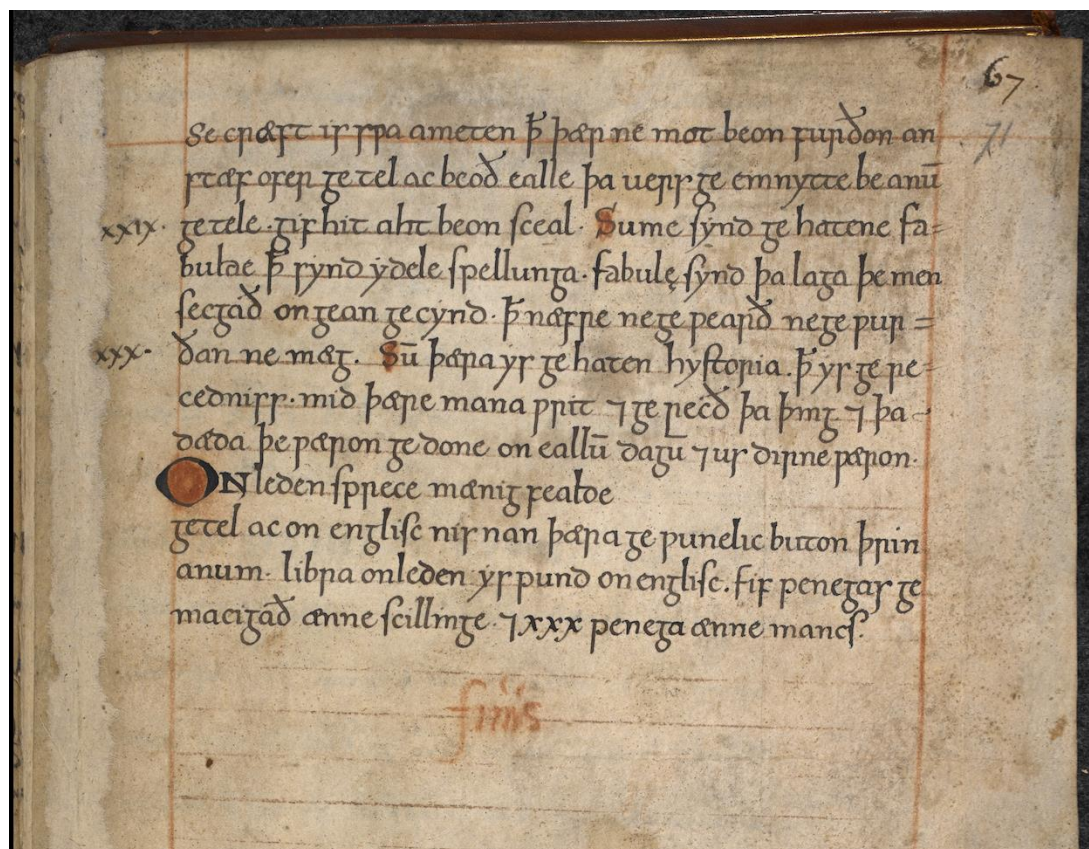 67
71
Se cræft is sƿa ameten ꝥ þær ne mot beon furðon an
stæf ofer getel ac beoð ealle þa uerſ ge emnytte be anū
xxix. getele. gif hit aht beon sceal. Sume synd ge hatene fa=
bulae ꝥ synd ẏdele spellunga. fabulę synd þa saga þe men
secgað ongean gecynd. ꝥ næfre ne geƿearð ne geƿur=
xxx. ðan ne mæg. Sū þæra ys ge haten hystoria. ꝥ ys ge re=
cedniss. mid þære mana ƿrit ⁊ ge recð þa þing ⁊ þa
dæda þe ƿæron ge done on eallū dagū ⁊ us dirne ƿæron.
ON leden sprece mænig fealde
getel ac on englisc nis nan þæra ge ƿunelic buton þrin
anum. libra onleden ẏs pund on englisc. fif penegas ge
macigað ænne scillinge. ⁊ xxx penega ænne mancs.
finis